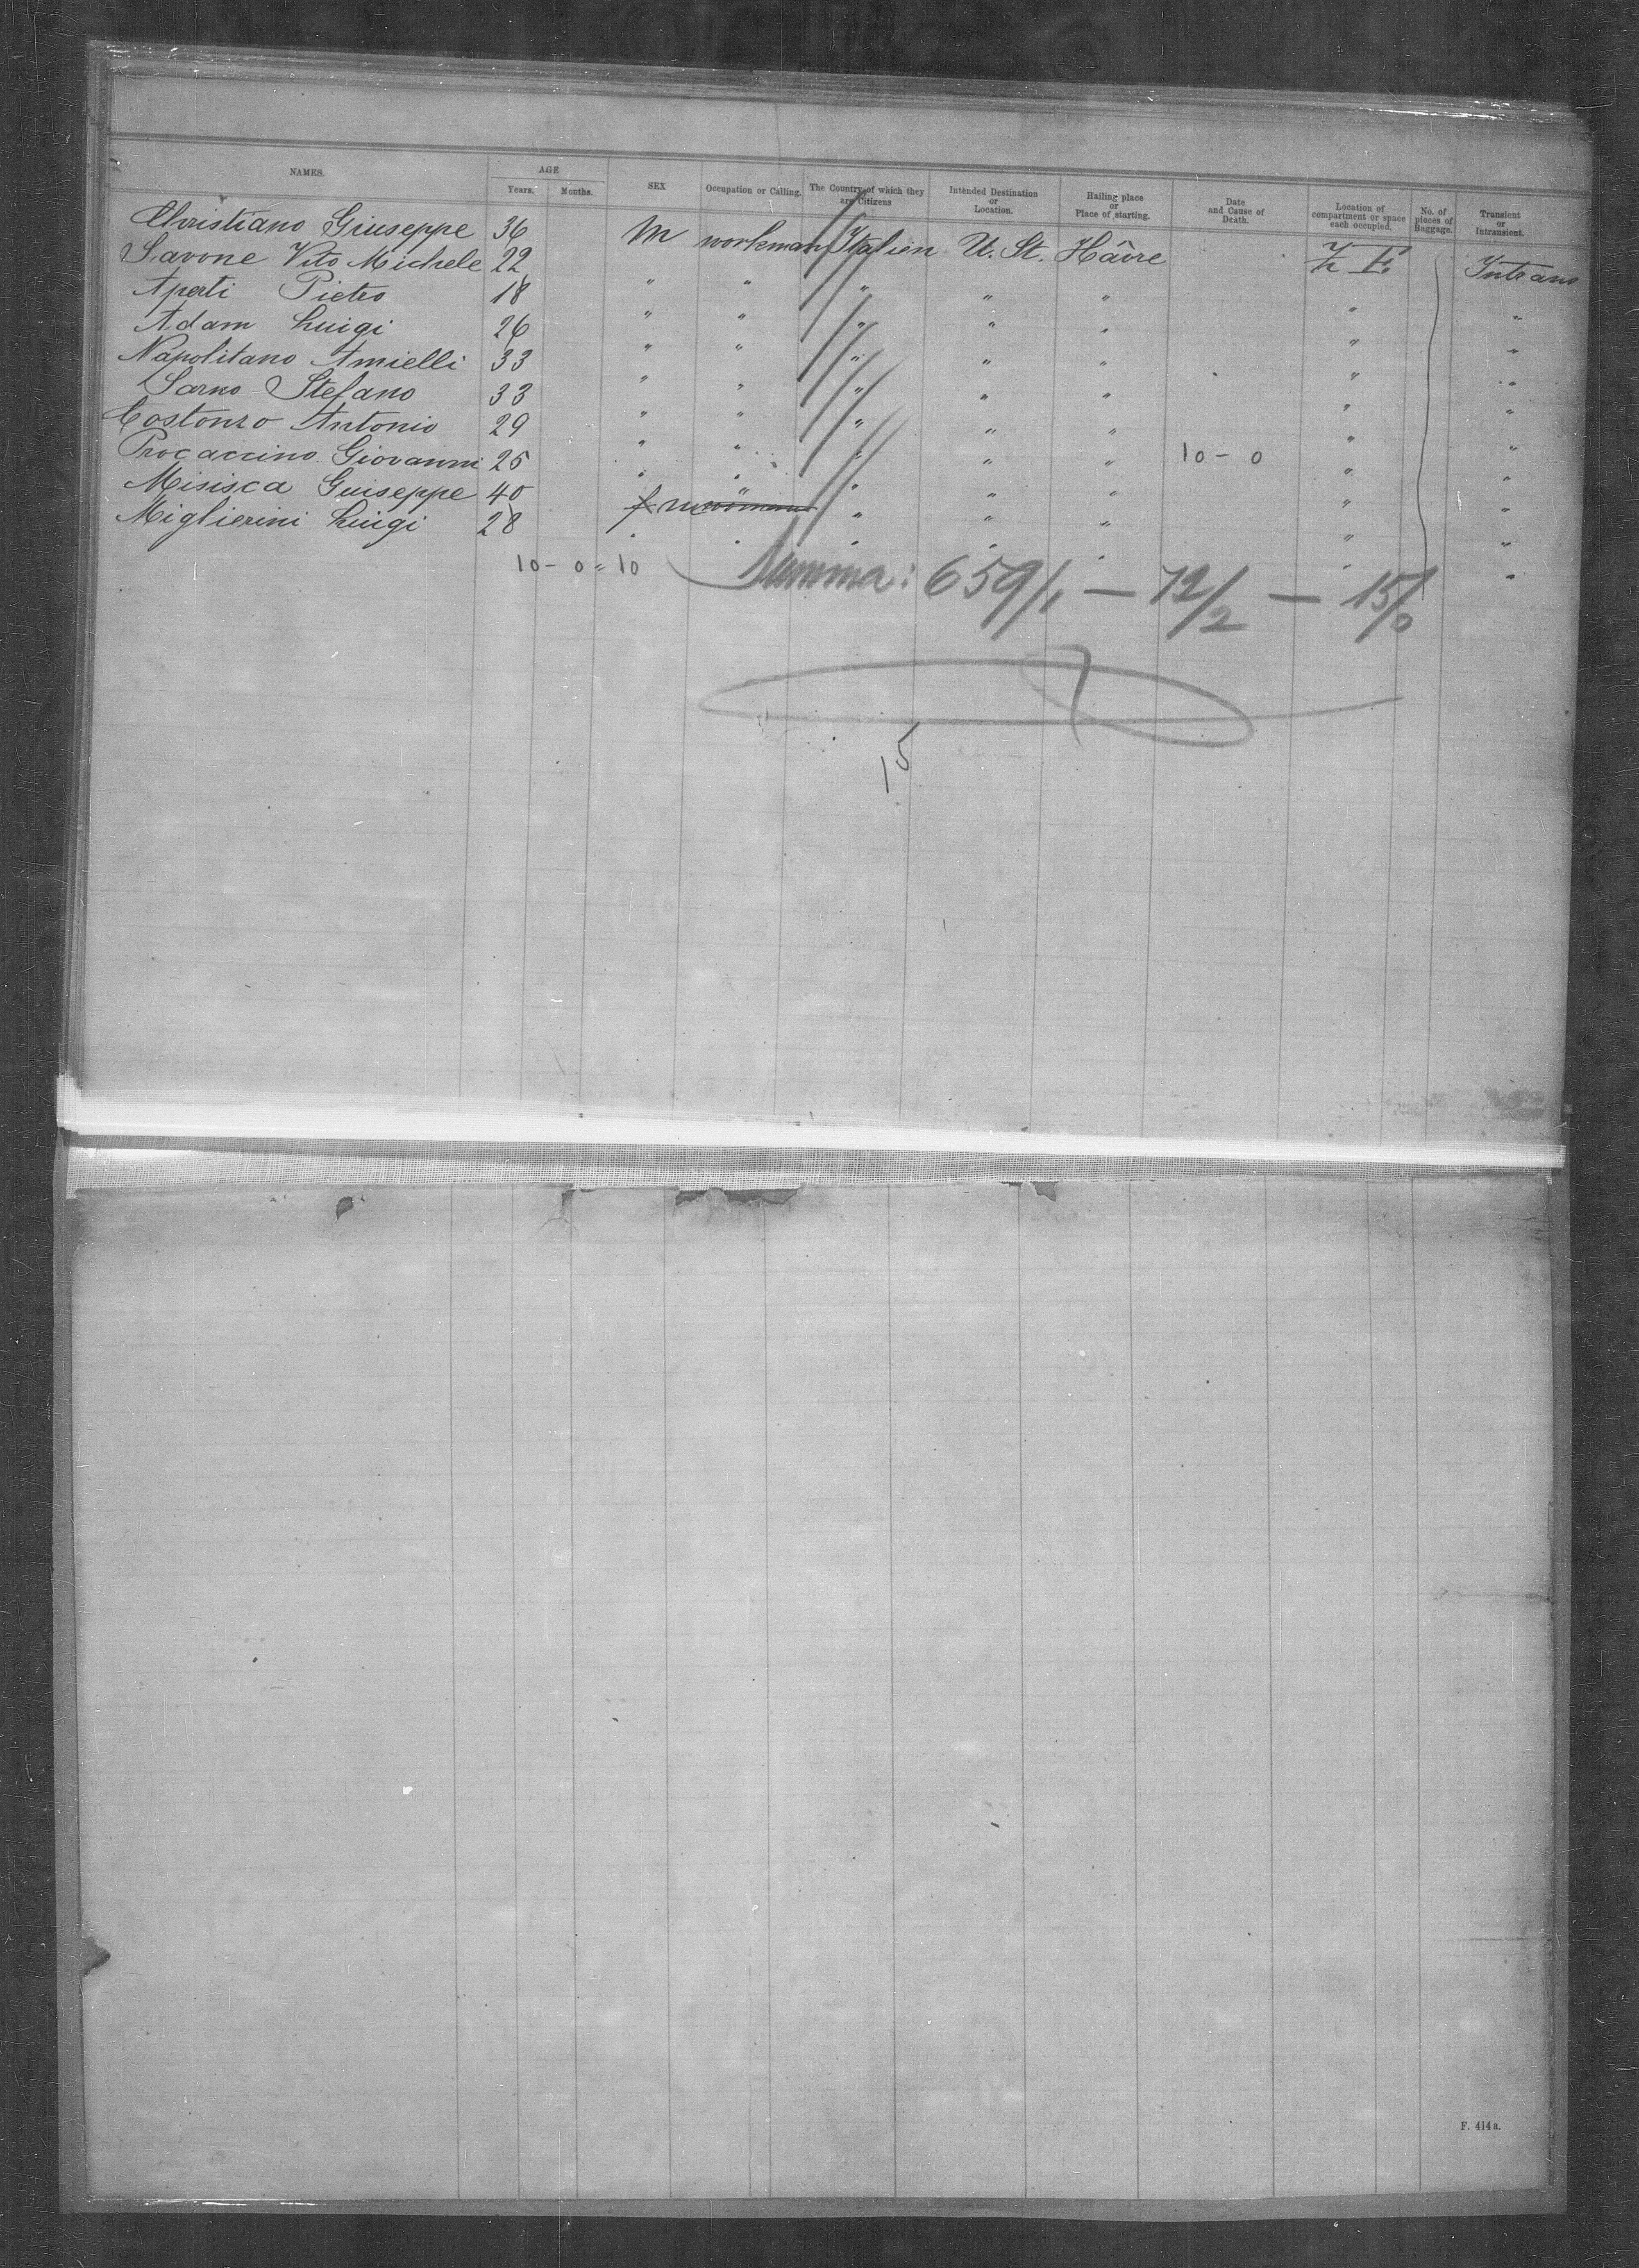 NAMES. AGE SEX Occupation or Calling. The Country of which they are Citizens Intended Destination or Location. Hailing place or Place of starting. Date and Cause of Death. Location of compartment or space each occupied. No. of pieces of Baggage. Transient or Intransient.
Years. Months.
Christiano Giuseppe 36 M workman Italien U. St. Hâvre Z E. Intrans
Savone Vito Michele 22 " " " " " " "
Aperti Pietro 18 " " " " " " "
Adam Luigi 26 " " " " " " "
Napolitano Amielli 33 " " " " " " "
Sarno Stefano 33 " " " " " " "
Costonzo Antonio 29 " " " " " " "
Procaccino Giovanni 25 " " " " " 10-0 " "
Misisca Guiseppe 40 " " " " " "
Miglierini Luigi 28 " " " " " " "
10-0=10 Summa: 659/1 — 72/2 — 15/0
15
F. 414a.